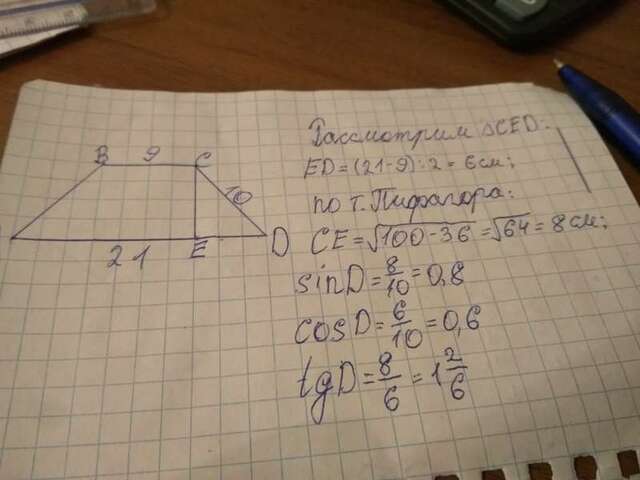 B 9 C
10
D
21 E
Рассмотрим △CED.
ED = (21-9) : 2 = 6 см;
по т. Пифагора:
CE = √100-36 = √64 = 8 см;
sinD = 8/10 = 0,8
cosD = 6/10 = 0,6
tgD = 8/6 = 1 2/6